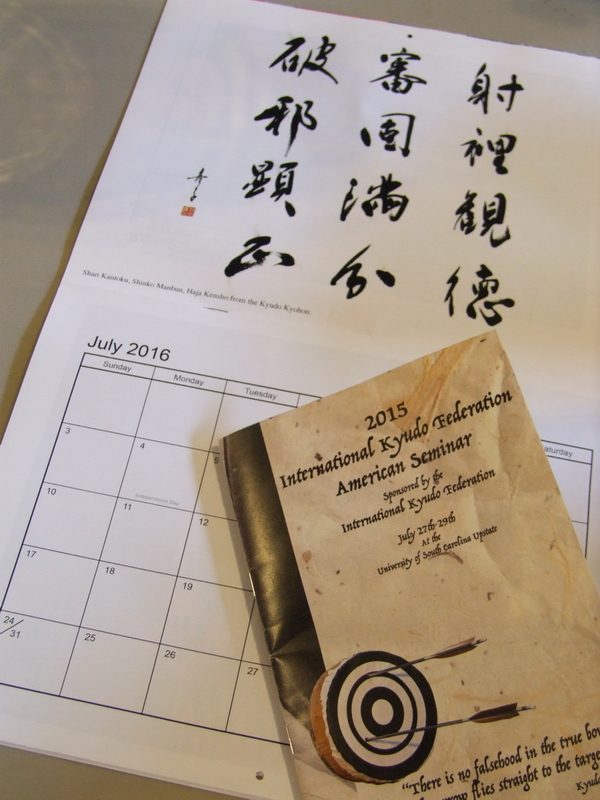 射裡観徳
審固満分
破邪顕正
Shari Kantoku, Shinko Manbun, Haja Kensho from the Kyudo Kyohon.
July 2016
Sunday Monday Tuesday aturday
3 4 5
Independence Day
10 11 12
17 18 19
24/31 25 26 27
2015
International Kyudo Federation
American Seminar
Sponsored by the
International Kyudo Federation
July 27th-29th
At the
University of South Carolina Upstate
"There is no falsehood in the true bow
row flies straight to the targe
Kyudo